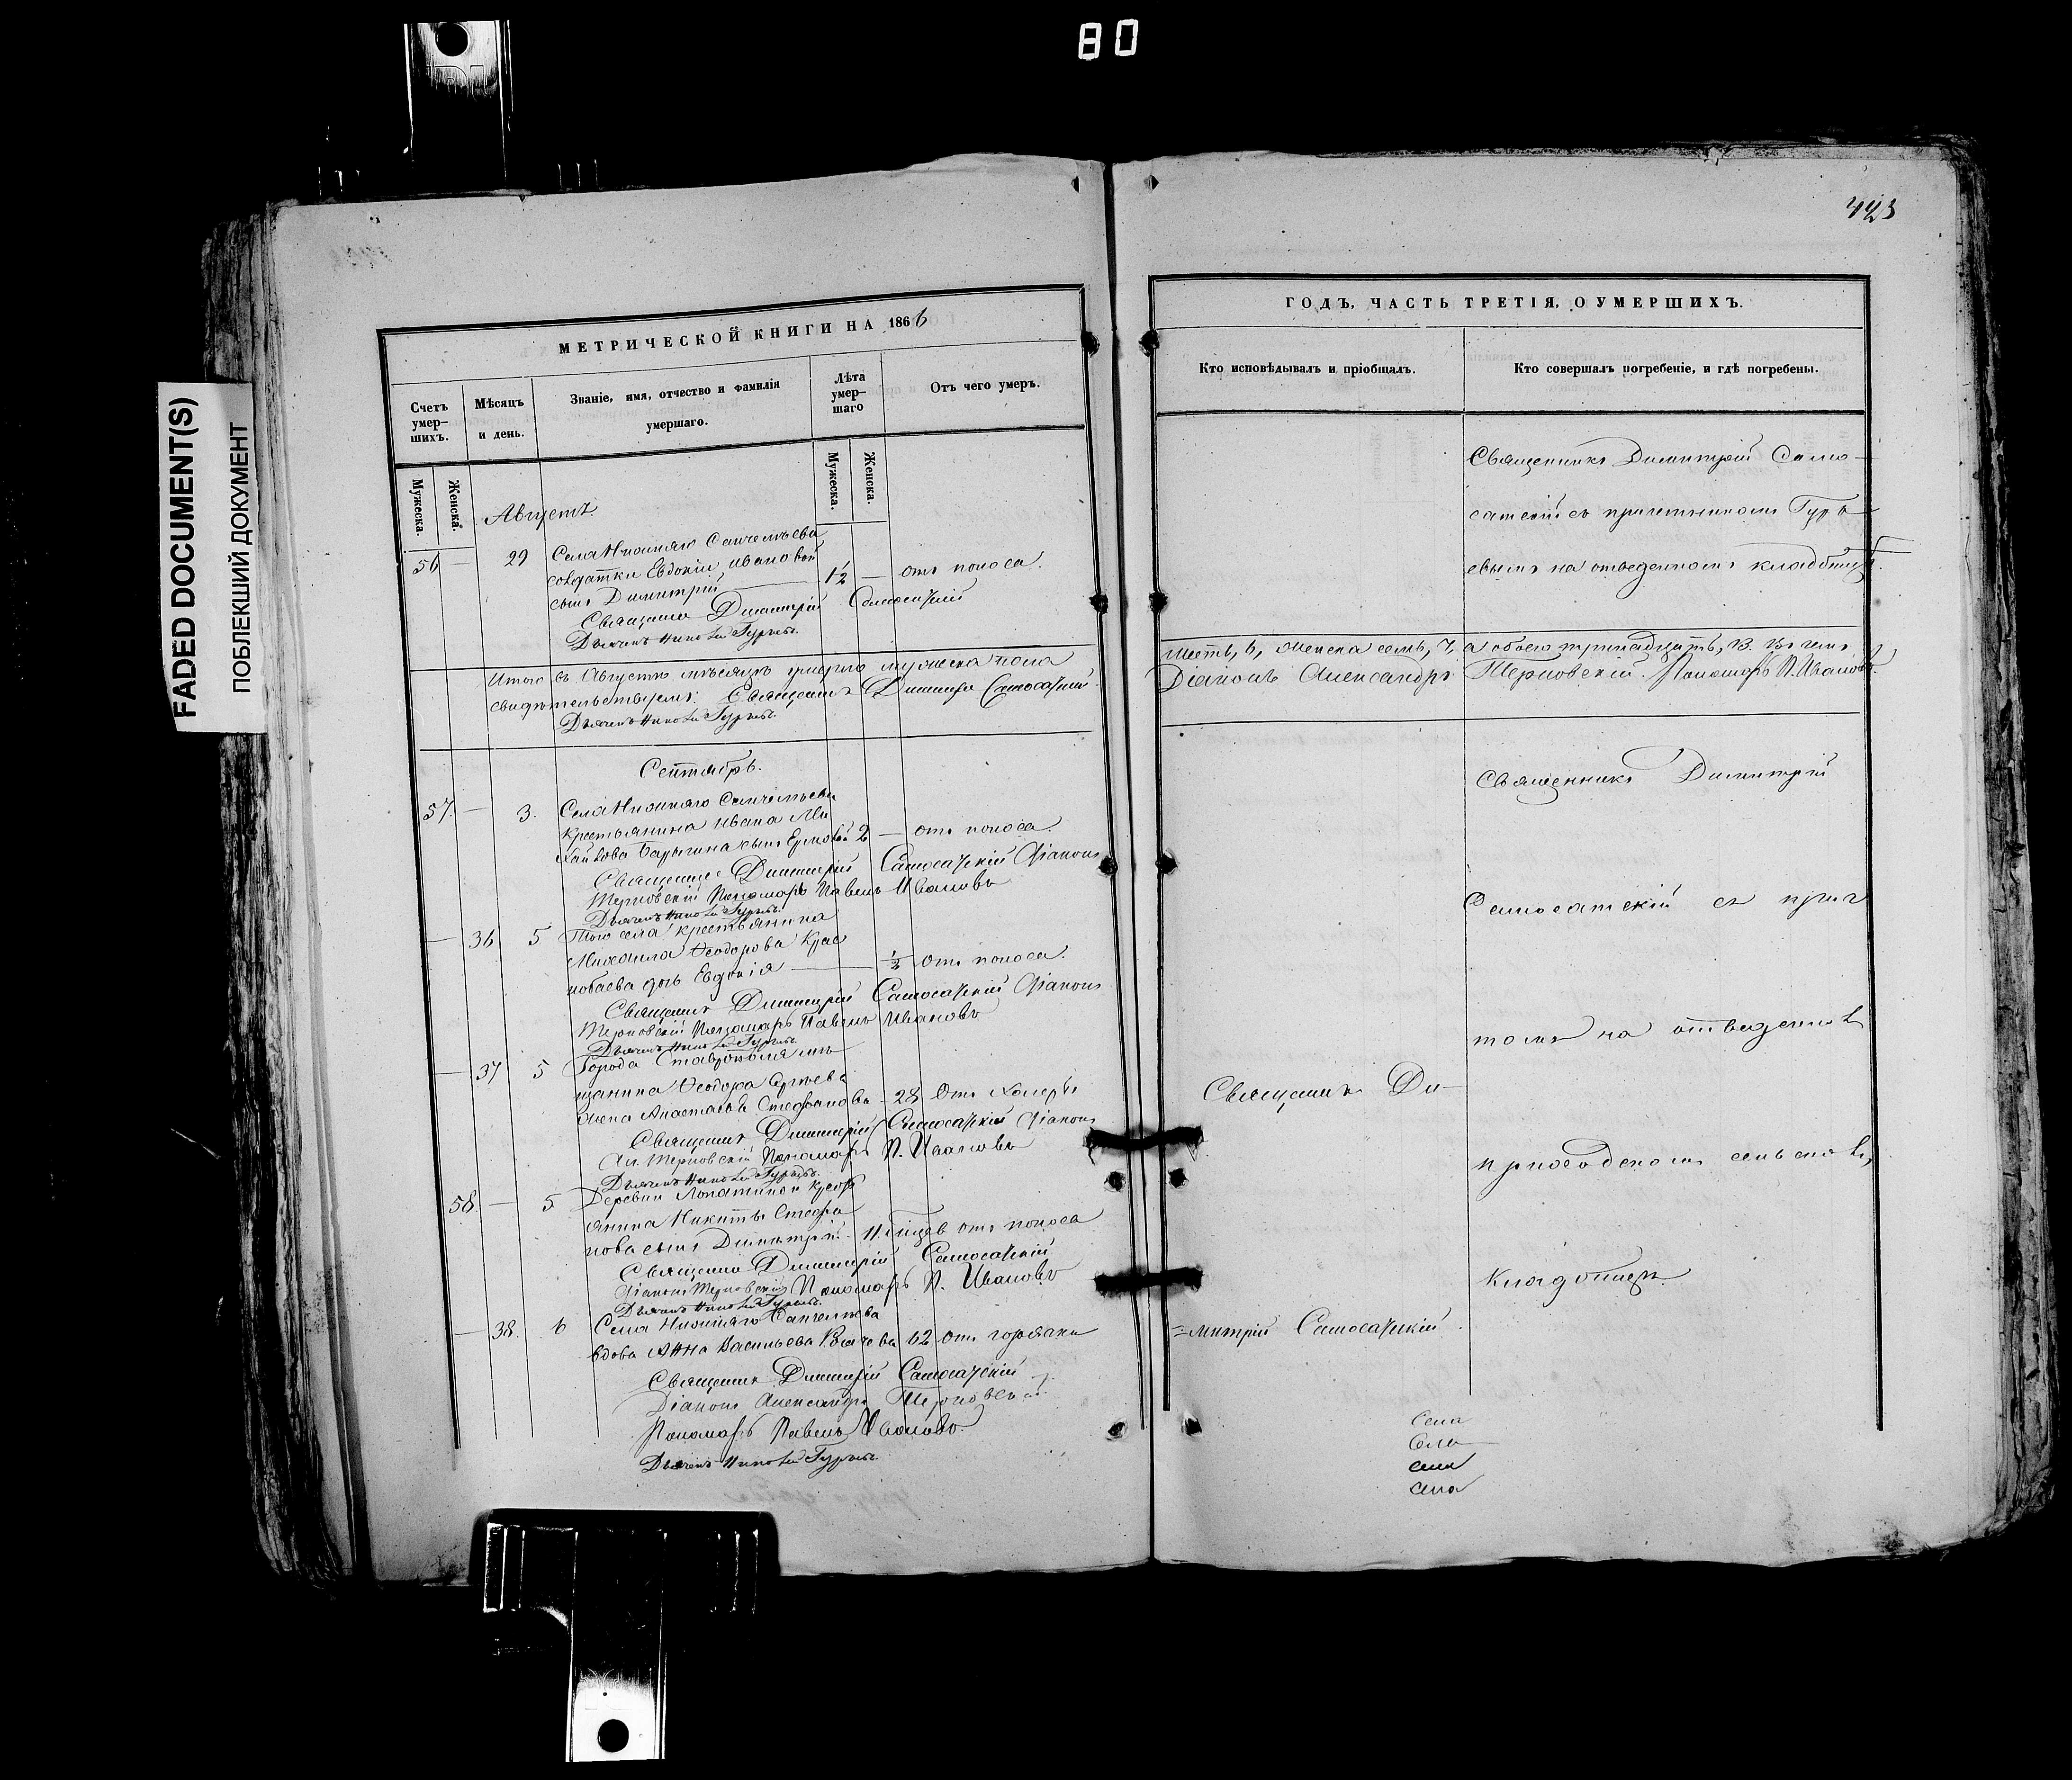 80
FADED DOCUMENT(S)
ПОБЛЕКШИЙ ДОКУМЕНТ
МЕТРИЧЕСКОЙ КНИГИ НА 1866
Счетъ умер-шихъ.
Мѣсяцъ и день.
Званіе, имя, отчество и фамилія умершаго.
Лѣта умер-шаго
Отъ чего умеръ.
Мужеска.
Женска.
Мужеска.
Женска.
Августъ.
56 — 29 Села Нижняго Санчелѣева
солдатки Евдокіи Ивановой
сынъ Димитрій 1½ — отъ поноса.
Священникъ Димитрій Самосатскій
Дьячекъ Николай Гурьевъ.
Итого въ Августѣ мѣсяцѣ умерло мужеска пола
свидѣтельствуемъ: Священникъ Димитрій Самосатскій.
Дьячекъ Николай Гурьевъ.
Сентябрь.
57. — 3. Села Нижняго Санчелѣева
крестьянина Ивана Ми
хайлова сынъ 2 — отъ поноса.
Священникъ Димитрій Самосатскій Діаконъ
Терновскій Пономарь Павелъ Ивановъ
Дьячекъ Николай Гурьевъ.
— 36 5 Того села крестьянина
Михаила Ѳеодорова
дочь Евдокія — ½ отъ поноса.
Священникъ Димитрій Самосатскій Діаконъ
Терновскій Пономарь Павелъ Ивановъ
Дьячекъ Николай Гурьевъ.
— 37 5 Города Ставрополя мѣ
щанина Ѳеодора Сергѣева
жена Анастасія Стефанова — 28 отъ холеры
Священникъ Димитрій Самосатскій Діаконъ
Ал. Терновскій Пономарь П. Ивановъ
Дьячекъ Николай Гурьевъ.
58. — 5 Деревни Лопатиной крестъ
янина Никиты Стефа
нова сынъ Димитрій отъ поноса
Священникъ Димитрій Самосатскій
Діаконъ Терновскій Пономарь П. Ивановъ
Дьячекъ Николай Гурьевъ.
— 38. 6 Села Нижняго Санчелѣева
вдова Анна Васильева 62 отъ горячки
Священникъ Димитрій Самосатскій
Діаконъ Александръ Терновскій
Пономарь Павелъ Ивановъ.
Дьячекъ Николай Гурьевъ.
423
ГОДЪ, ЧАСТЬ ТРЕТІЯ, О УМЕРШИХЪ.
Кто исповѣдывалъ и пріобщалъ.
Кто совершалъ погребеніе, и гдѣ погребены.
Священникъ Димитрій Само-
сатскій съ причетникомъ Гурь
евымъ на отведенномъ кладбищѣ.
шесть, 6, женска семь, 7, а обоего тринадцать, 13. Въ чемъ
Діаконъ Александръ Терновскій. Пономарь П. Ивановъ.
Священникъ Димитрій
Самосатскій съ прич
томъ на отведенномъ
Священникъ Ди-
приходскомъ сельскомъ
кладбищѣ.
=митрій Самосатскій.
Села
Села
села
села